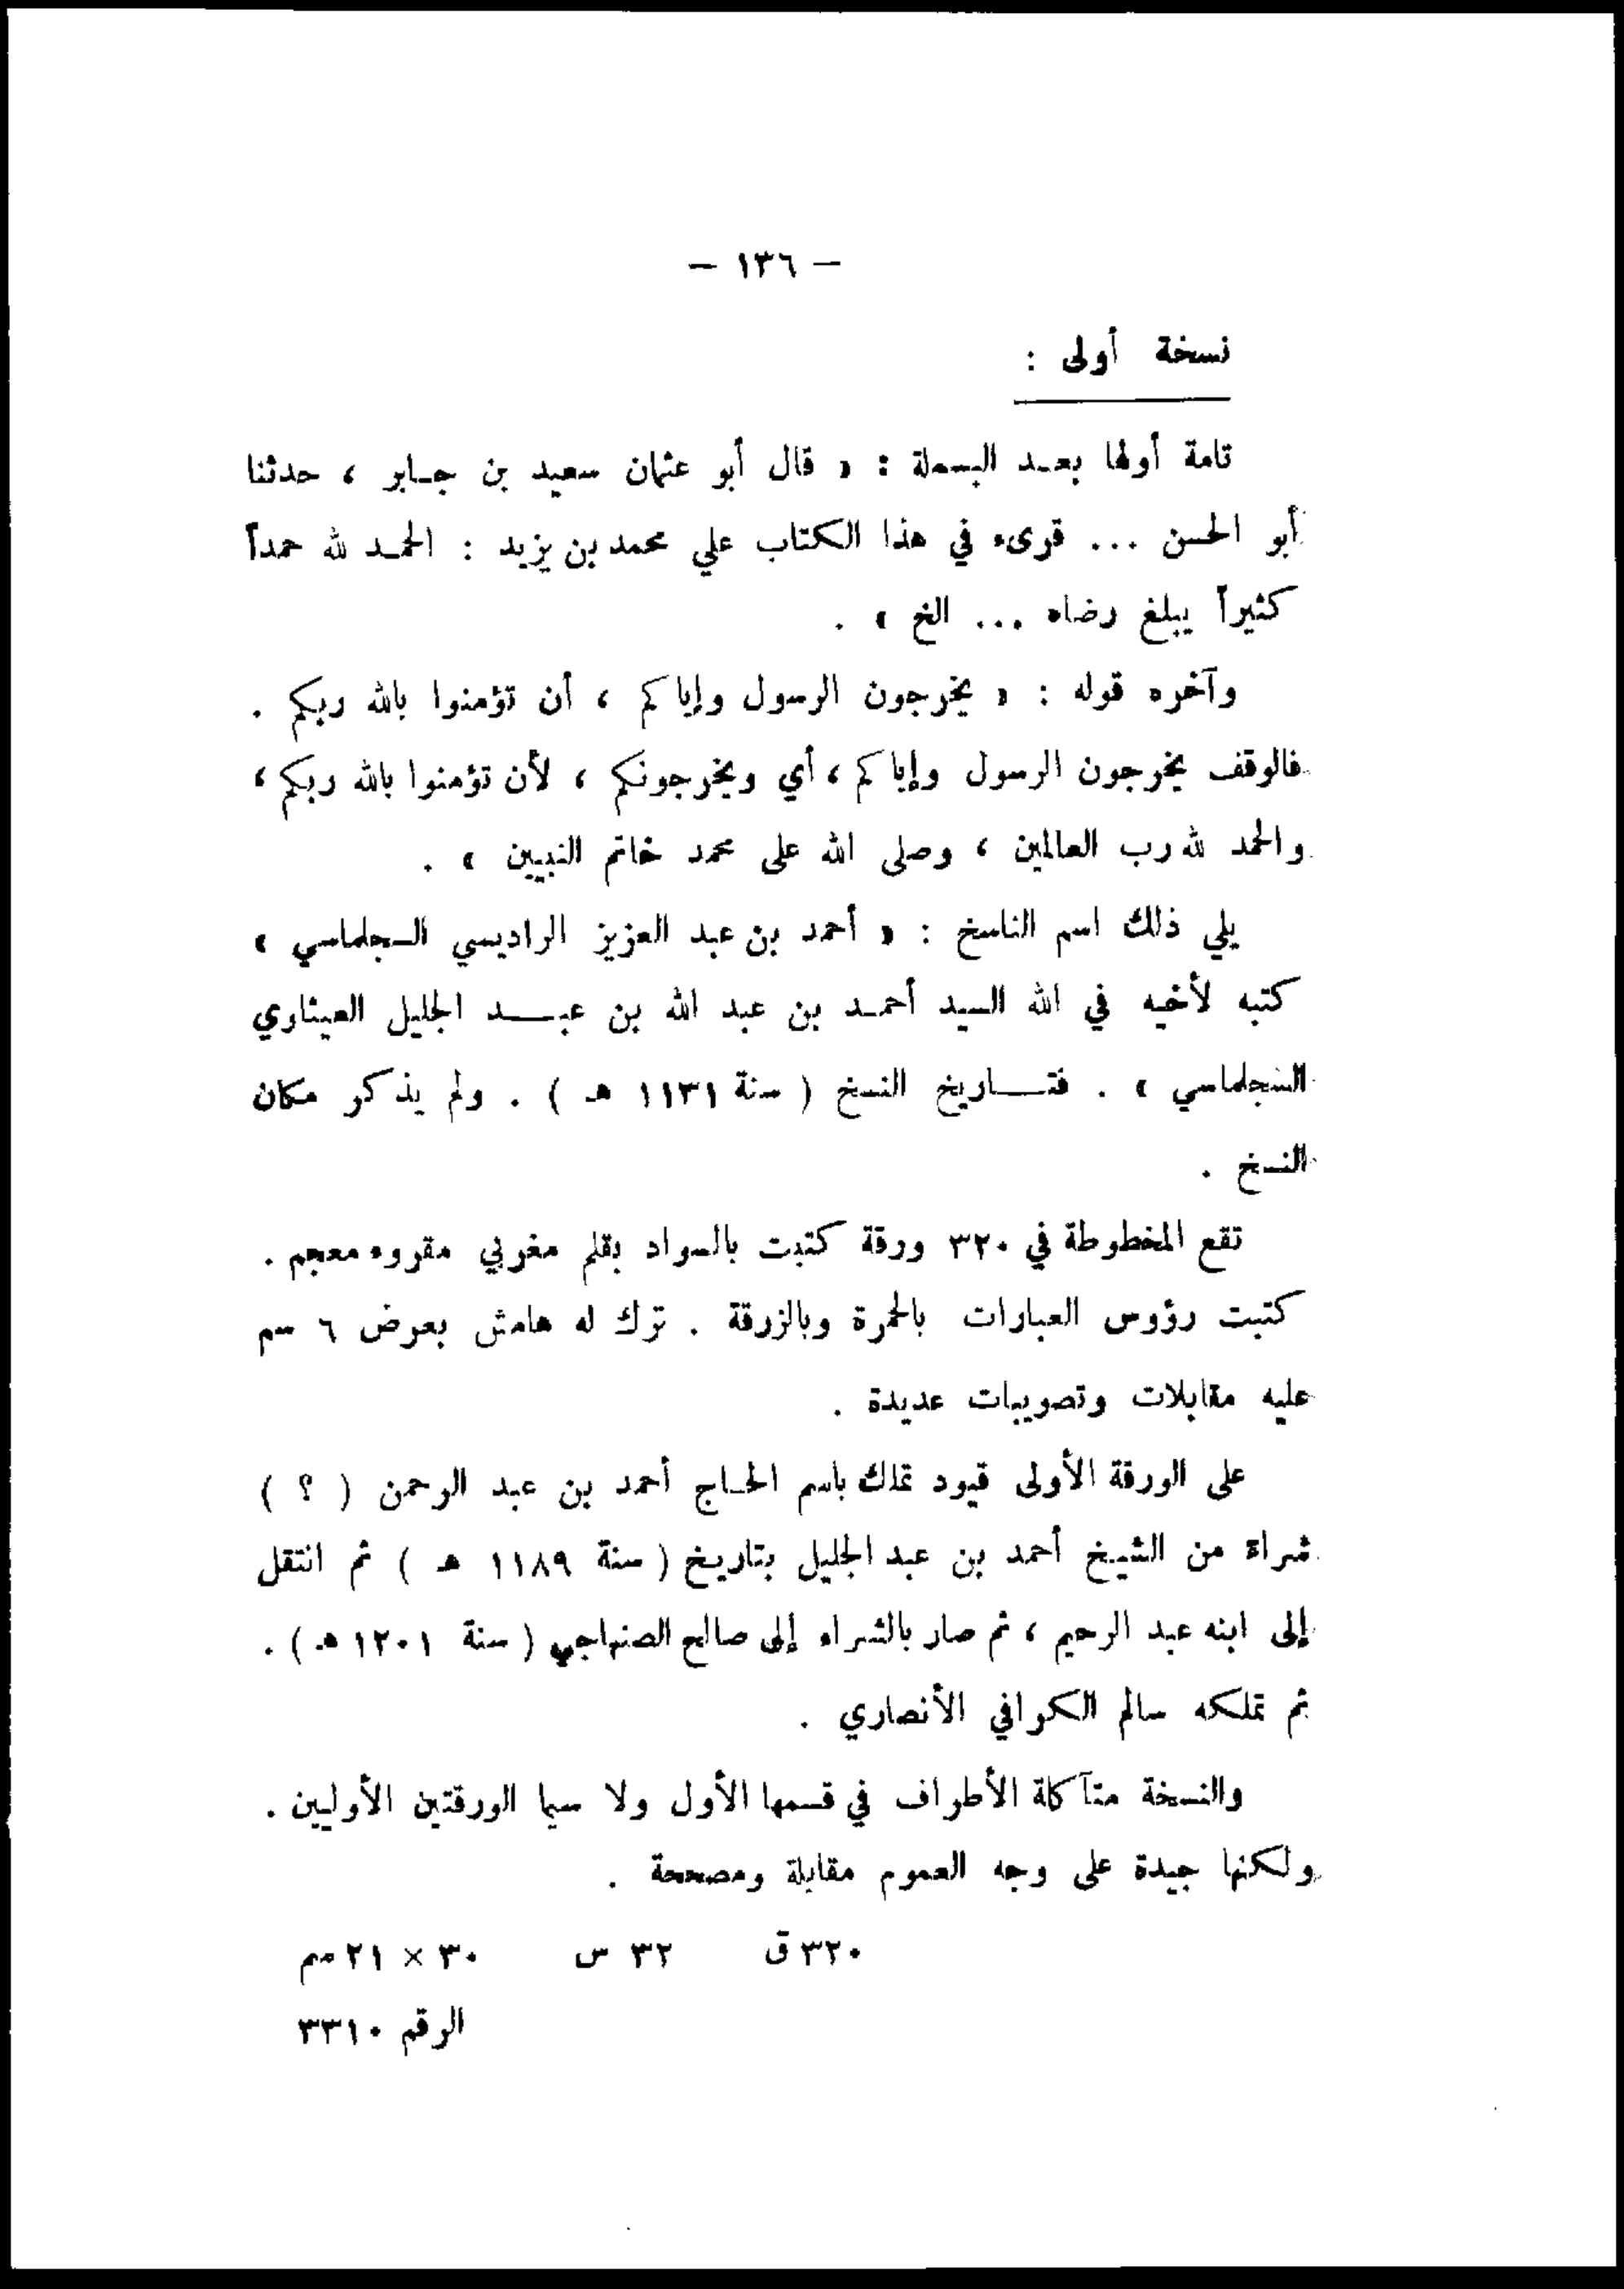 — ١٣٦ —
نسخة أولى :
تامة أولها بعد البسملة : « قال أبو عثمان سعيد بن جابر ، حدثنا
أبو الحسن ... قرىء في هذا الكتاب علي محمد بن يزيد : الحمد لله حمداً
كثيراً يبلغ رضاه ... الخ » .
وآخره قوله : « يخرجون الرسول وإياكم ، أن تؤمنوا بالله ربكم .
فالوقف يخرجون الرسول وإياكم ، أي ويخرجونكم ، لأن تؤمنوا بالله ربكم ،
والحمد لله رب العالمين ، وصلى الله على محمد خاتم النبيين » .
يلي ذلك اسم الناسخ : « أحمد بن عبد العزيز الراديسي السجلماسي »
كتبه لأخيه في الله السيد أحمد بن عبد الله بن عبد الجليل العيثاوي
السجلماسي » . فتاريخ النسخ ( سنة ١١٣١ هـ ) . ولم يذكر مكان
النسخ .
تقع المخطوطة في ٣٢٠ ورقة كتبت بالسواد بقلم مغربي مقروء معجم .
كتبت رؤوس العبارات بالحمرة وبالزرقة . ترك له هامش بعرض ٦ سم
عليه مقابلات وتصويبات عديدة .
على الورقة الأولى قيود تملك باسم الحاج أحمد بن عبد الرحمن ( ؟ )
شراءً من الشيخ أحمد بن عبد الجليل بتاريخ ( سنة ١١٨٩ هـ ) ثم انتقل
إلى ابنه عبد الرحيم ، ثم صار بالشراء إلى صالح الصنهاجي ( سنة ١٢٠١ هـ ) .
ثم تملكه سالم الكوافي الأنصاري .
والنسخة متآكلة الأطراف في قسمها الأول ولا سيما الورقتين الأوليين .
ولكنها جيدة على وجه العموم مقابلة ومصححة .
٣٢٠ ق ٣٢ س ٣٠ × ٢١ سم
الرقم ٣٣١٠